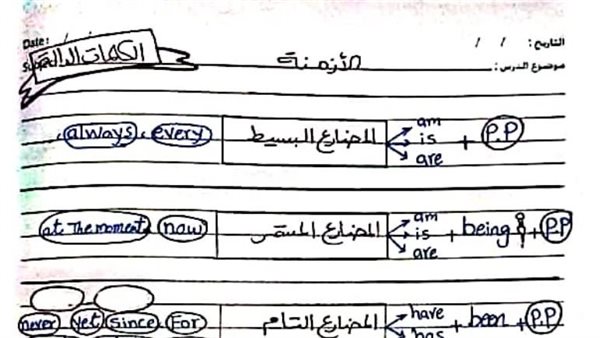 Date: / / التاريخ: / /
Subject موضوع الدرس:
الكلمات الدالة الأزمنة
always, every المضارع البسيط am is are + P.P
at The moment, now المضارع المستمر am is are + being + P.P
never yet since For المضارع التام have has + been + P.P